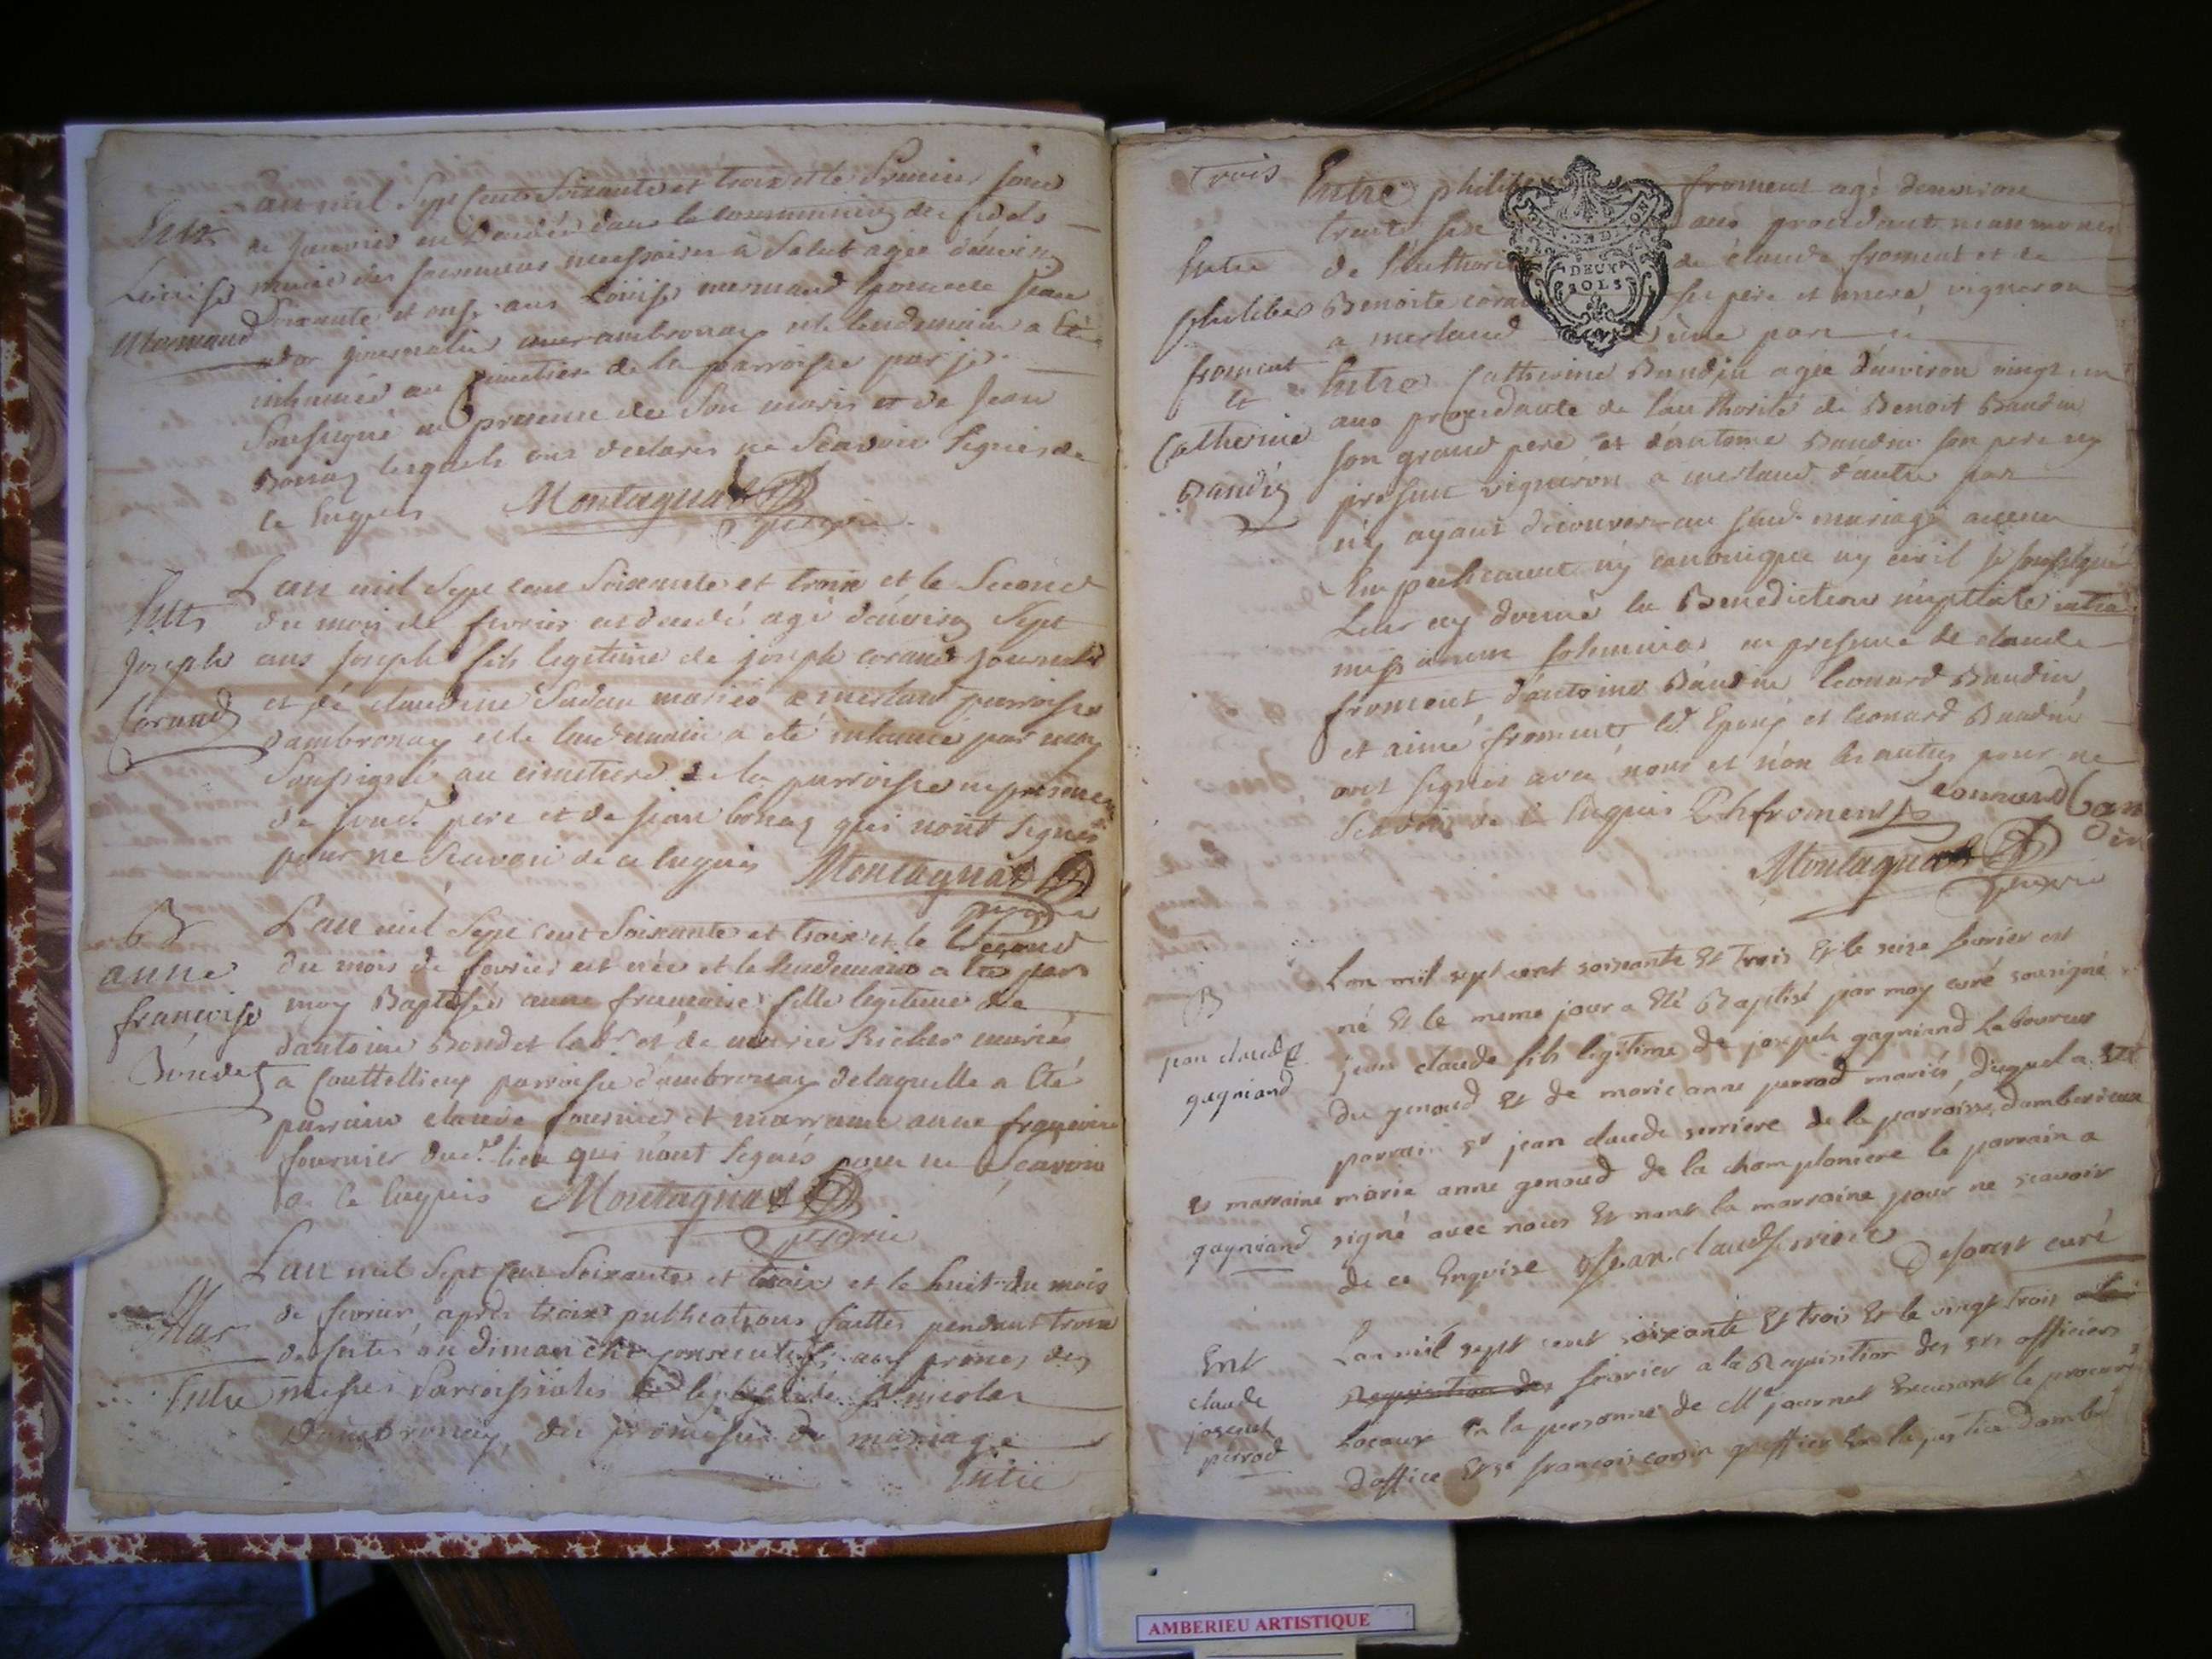 L'an mil Sept Cents Soixante et trois et le Premier jour
de janvier est decedée dans la communion des fidels
munie des sacrements necessaires a Salut agée d'environ
Soixante et onse ans Loüise mermand femme de jean
journalier a ambronay et le lendemain a été
inhumée au cimetiere de la parroisse par je
Soussigné en presence de Son maris et de Jean
Bonaz lesquels ont declarés ne Scavoir Signer de
ce Enquis Montagnat
Ent
Loüise
Mermand
L'an mil Sept cent Soixante et trois et le Second
du mois de fevrier est decedé agé d'environ Sept
ans joseph fils legitime de joseph corand journalier
et de claudine Sudan mariés a merland parroisse
d'ambronay et le lendemain a été inhumé par moy
Soussigné au cimetiere de la parroisse en presence
de sond. pere et de jean bonaz qui n'ont Signés
pour ne Scavoir de ce Enquis Montagnat
Ent
Joseph
Corand
L'an mil Sept cent Soixante et trois et le Second
du mois de fevrier est née et le lendemain a été par
moy Baptisée anne francoise fille legitime de
d'antoine Bondet labr et de marie Richer mariés
a Couttellieux parroisse d'ambronay de laquelle a été
parrain claude fournier et marraine anne francoise
fournier dud. lieu qui n'ont Signés pour ne Scavoir
de ce Enquis Montagnat
B
anne
francoise
Bondet
L'an mil Sept Cent Soixante et trois et le huit du mois
de fevrier, apres trois publications faittes pendant trois
de festes ou dimanche consecutifs aux prones des
messes Parroissiales de l'eglise de St nicolas
d'ambronay, de promesse de mariage
Entre
Mar
Entre
trois
Entre philibert froment agé d'environ
trente six ans procedant
de l'authorité de claude froment et de
Benoite corand ses pere et mere vigneron
a merland d'une part
Entre Catherine Baudin agée d'environ vingt un
ans procedante de l'authorité de Benoit Baudin
son grand pere et d'antoine Baudin son pere icy
present vigneron a merland d'autre part
n'y ayant decouvert au sud. mariage aucun
Empechement ny canonique ny civil je soussigné
Leur ay donné la Benediction nuptiale intra
missarum solemnia en presence de claude
froment d'antoine Baudin leonard Baudin
et aimé froment led Epoux et leonard Baudin
ont signés avec nous et non les autres pour ne
Scavoir de ce Enquis Phfroment leonard Ban
din
Montagnat
Entre
philibert
froment
et
Catherine
Baudin
L'an mil sept cent soixante Et trois Et le seize fevrier est
né Et le meme jour a Eté Baptisé par moy curé sousigné
jean claude fils legitime de joseph gagniand laboureur
du genoud Et de marie anne perrod mariés, duquel a Eté
parrain sr jean claude serriere de la parroisse d'amberieux
Et marraine marie anne genoud de la championiere le parrain a
signé avec nous Et nont la marraine pour ne scavoir
de ce Enquise Jean claude serriere Deforest curé
B
jean claude
gagniand
gagniand
L'an mil sept cent soixante Et trois Et le vingt trois
Requisition des fevrier a la Requisition des srs officiers
Locaux En la personne de Mr journet Excusant le procureur
d'office Et sr francois corsin greffier En la justice d'ambr
Ent
claude
joseph
perrod
GEN. DE DIJON
DEUX
SOLS
AMBERIEU ARTISTIQUE